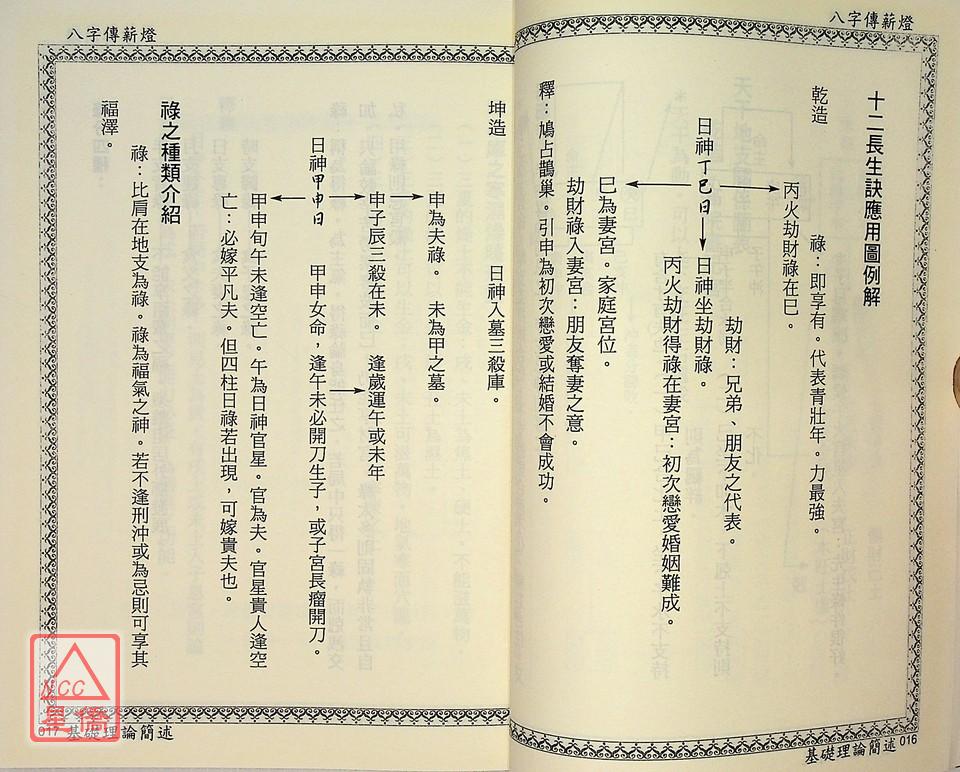 八字傳薪燈
十二長生訣應用圖例解
乾造
祿：即享有。代表青壯年。力最強。
丙火劫財祿在巳。
劫財：兄弟、朋友之代表。
日神丁巳日
日神坐劫財祿。
丙火劫財得祿在妻宮：初次戀愛婚姻難成。
巳為妻宮。家庭宮位。
劫財祿入妻宮：朋友奪妻之意。
釋：鳩占鵲巢。引申為初次戀愛或結婚不會成功。
基礎理論簡述 016
八字傳薪燈
坤造
日神入墓三殺庫。
申為夫祿。 未為甲之墓。
申子辰三殺在未。 逢歲運午或未年
日神甲申日
甲申女命，逢午未必開刀生子，或子宮長瘤開刀。
甲申旬午未逢空亡。午為日神官星。官為夫。官星貴人逢空
亡：必嫁平凡夫。但四柱日祿若出現，可嫁貴夫也。
祿之種類介紹
祿：比肩在地支為祿。祿為福氣之神。若不逢刑沖或為忌則可享其
福澤。
017 基礎理論簡述
NCC
星僑